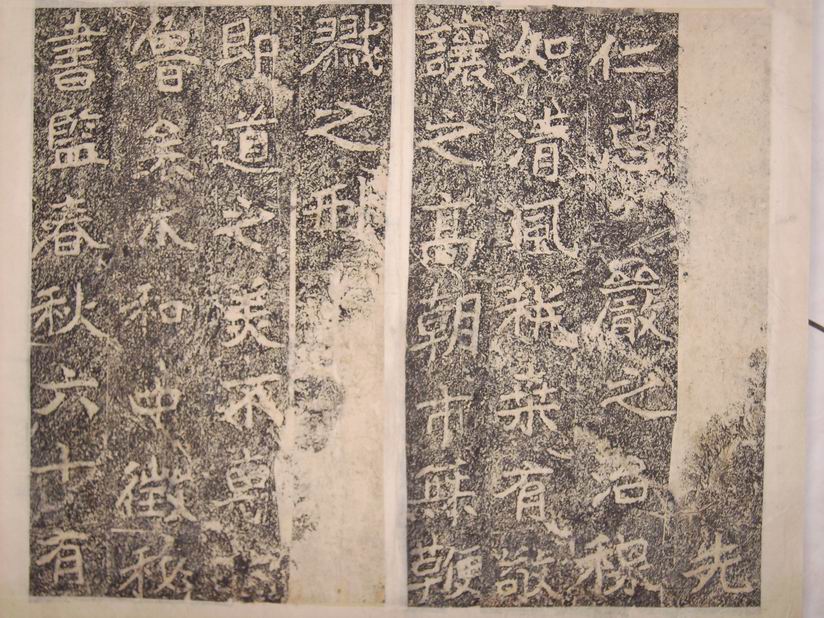 先
仁德嚴之治穆
如清風耕桑有敬
讓之高朝市無鞭
戮之刑
即道之美不專
魯矣太和中徵秘
書監春秋六十有